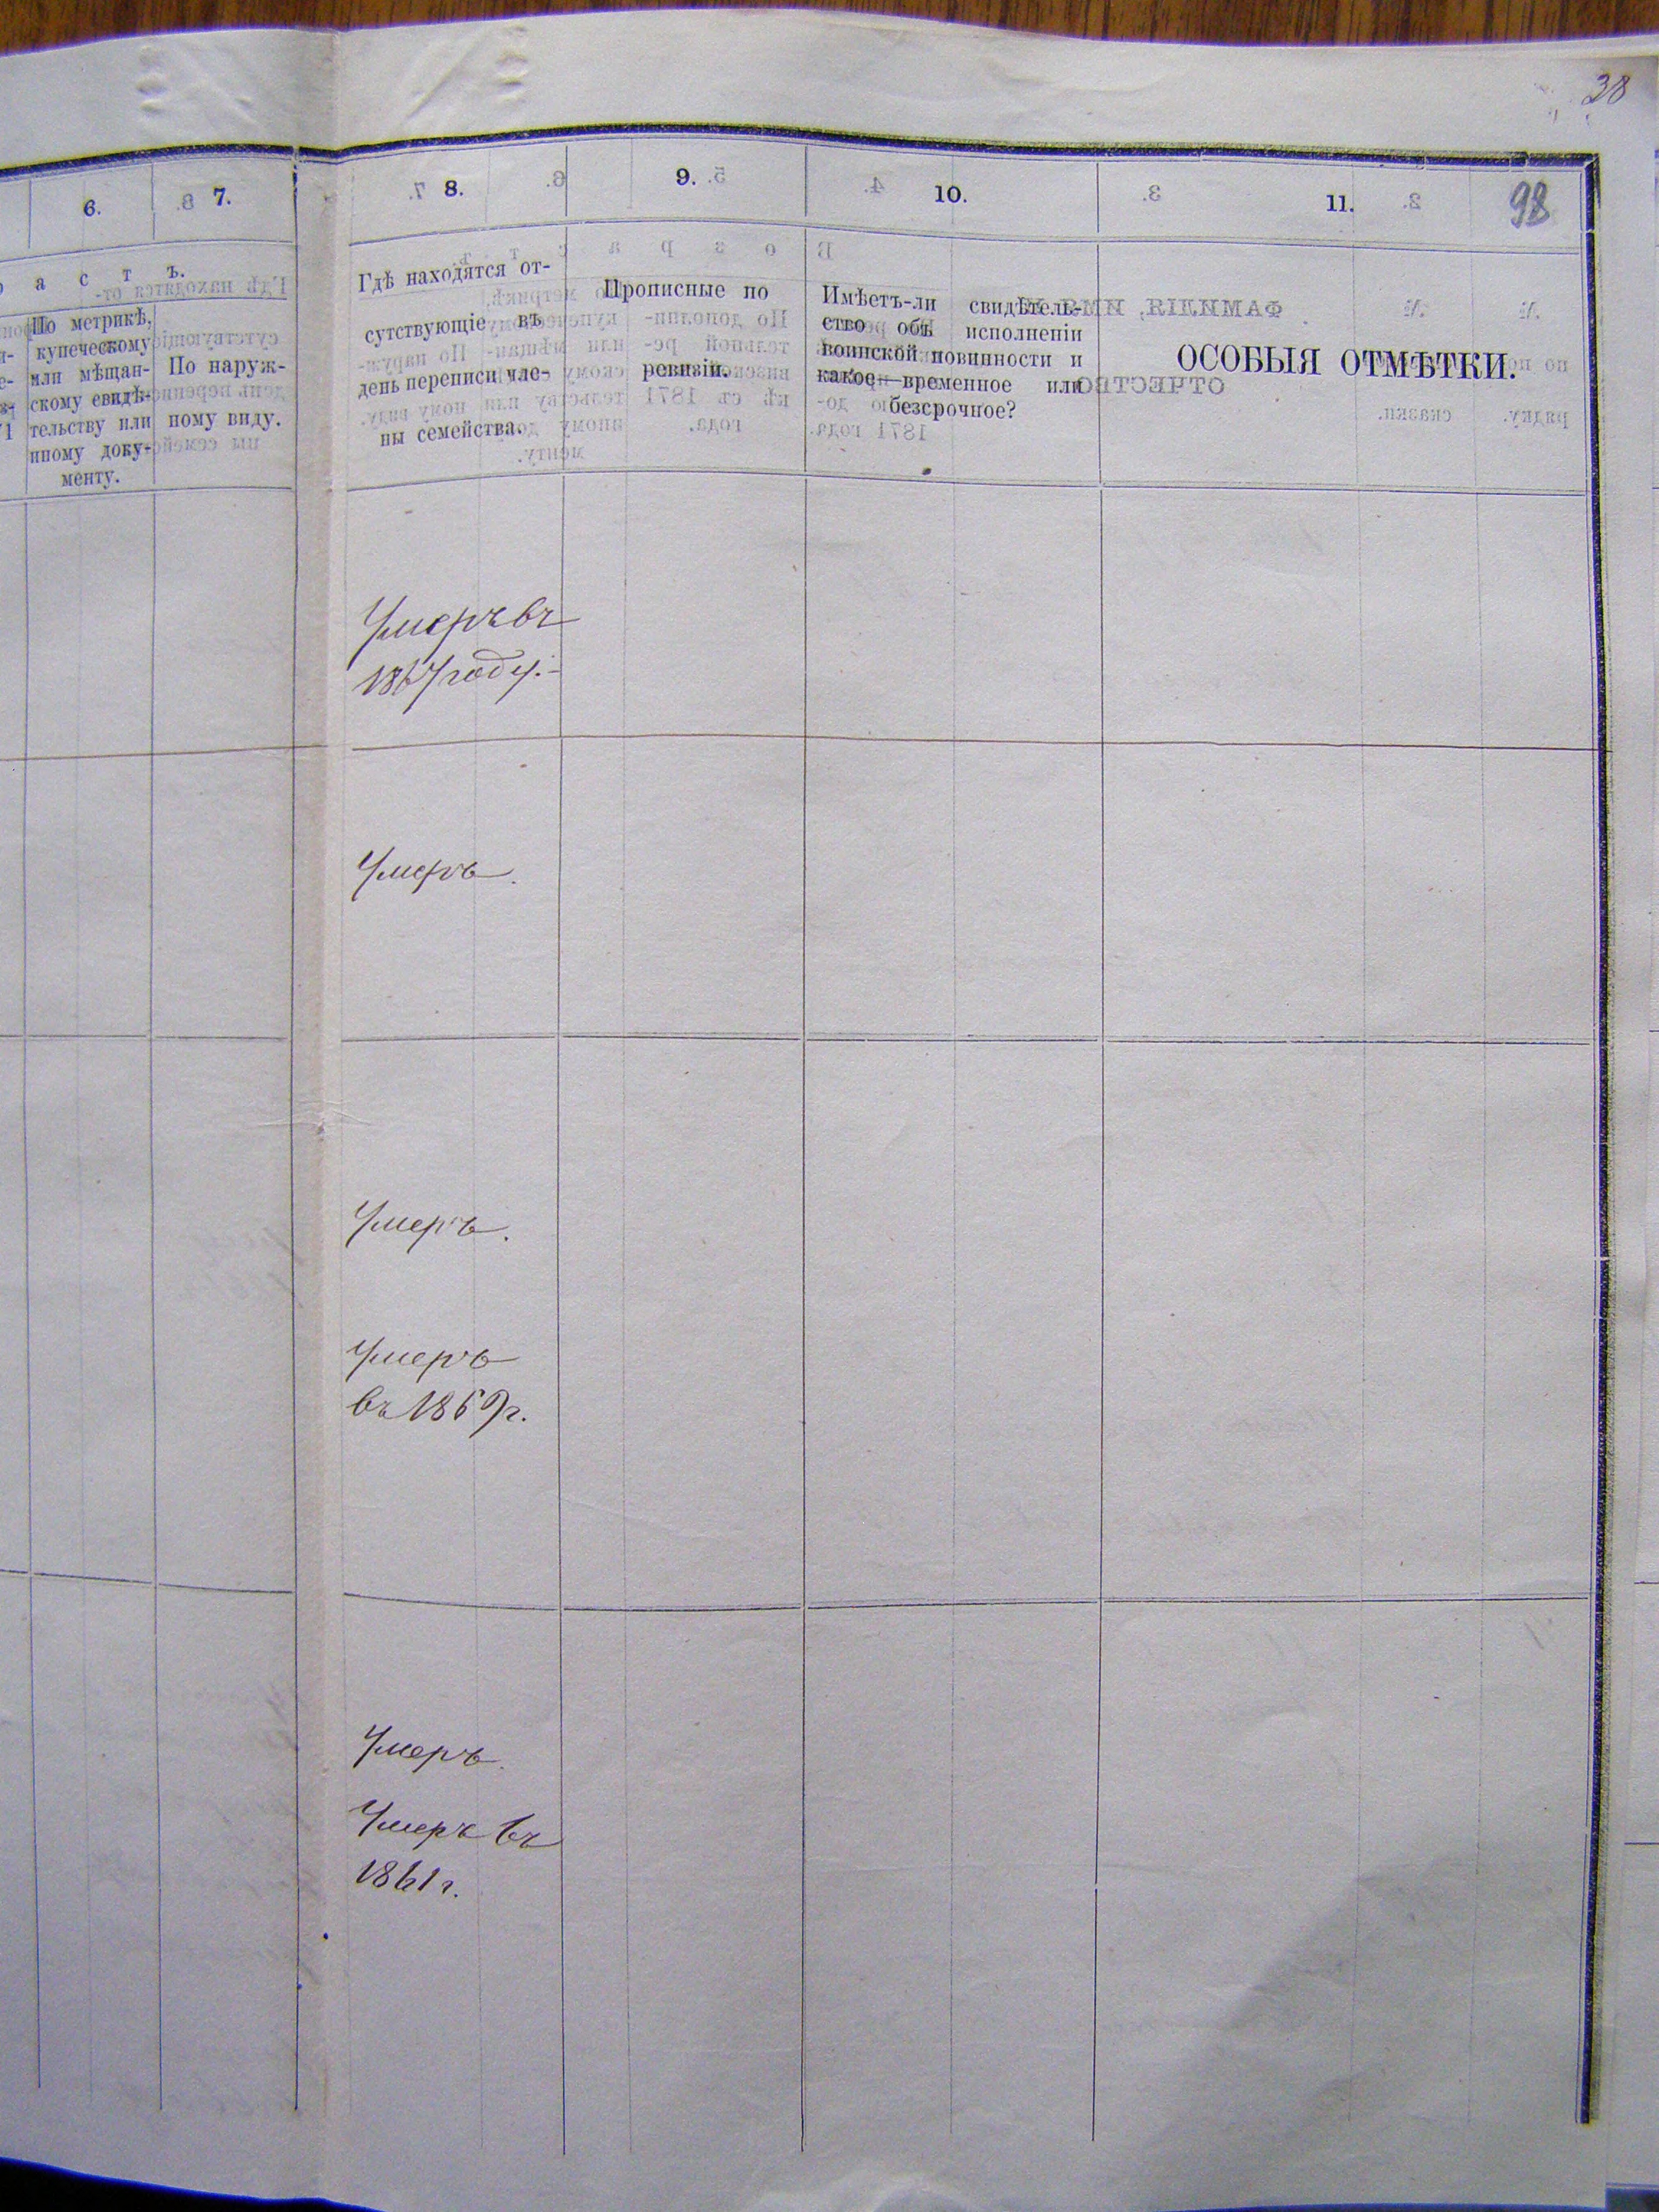 38
98
6.
7.
8.
9.
10.
11.
а с т ъ.
По метрикѣ,
купеческому
или мѣщан-
скому свидѣ-
тельству или
иному доку-
менту.
По наруж-
ному виду.
Гдѣ находятся от-
сутствующіе въ
день переписи чле-
ны семейства.
Прописные по
ревизіи.
Имѣетъ-ли свидѣтель-
ство объ исполненіи
воинской повинности и
какое—временное или
безсрочное?
ОСОБЫЯ ОТМѢТКИ.
Умеръ въ
1867 году.
Умеръ.
Умеръ.
Умеръ
въ 1869 г.
Умеръ.
Умеръ въ
1861 г.